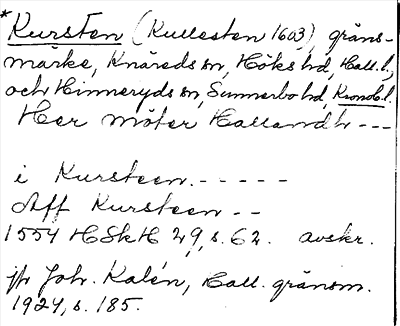 *Kursten (Kullesten 1603), gräns-
märke, Knäreds sn, Höks hd, Hall. l.,
och Hinneryds sn, Sunnerbo hd, Kronob. l.
Her möter Hallandh ---
i Kursteen. -----
Aff Kursteen --
1554 HSkH 29, s. 62. avskr.
jfr Joh. Kalén, Hall. gränsm.
1924, s. 185.